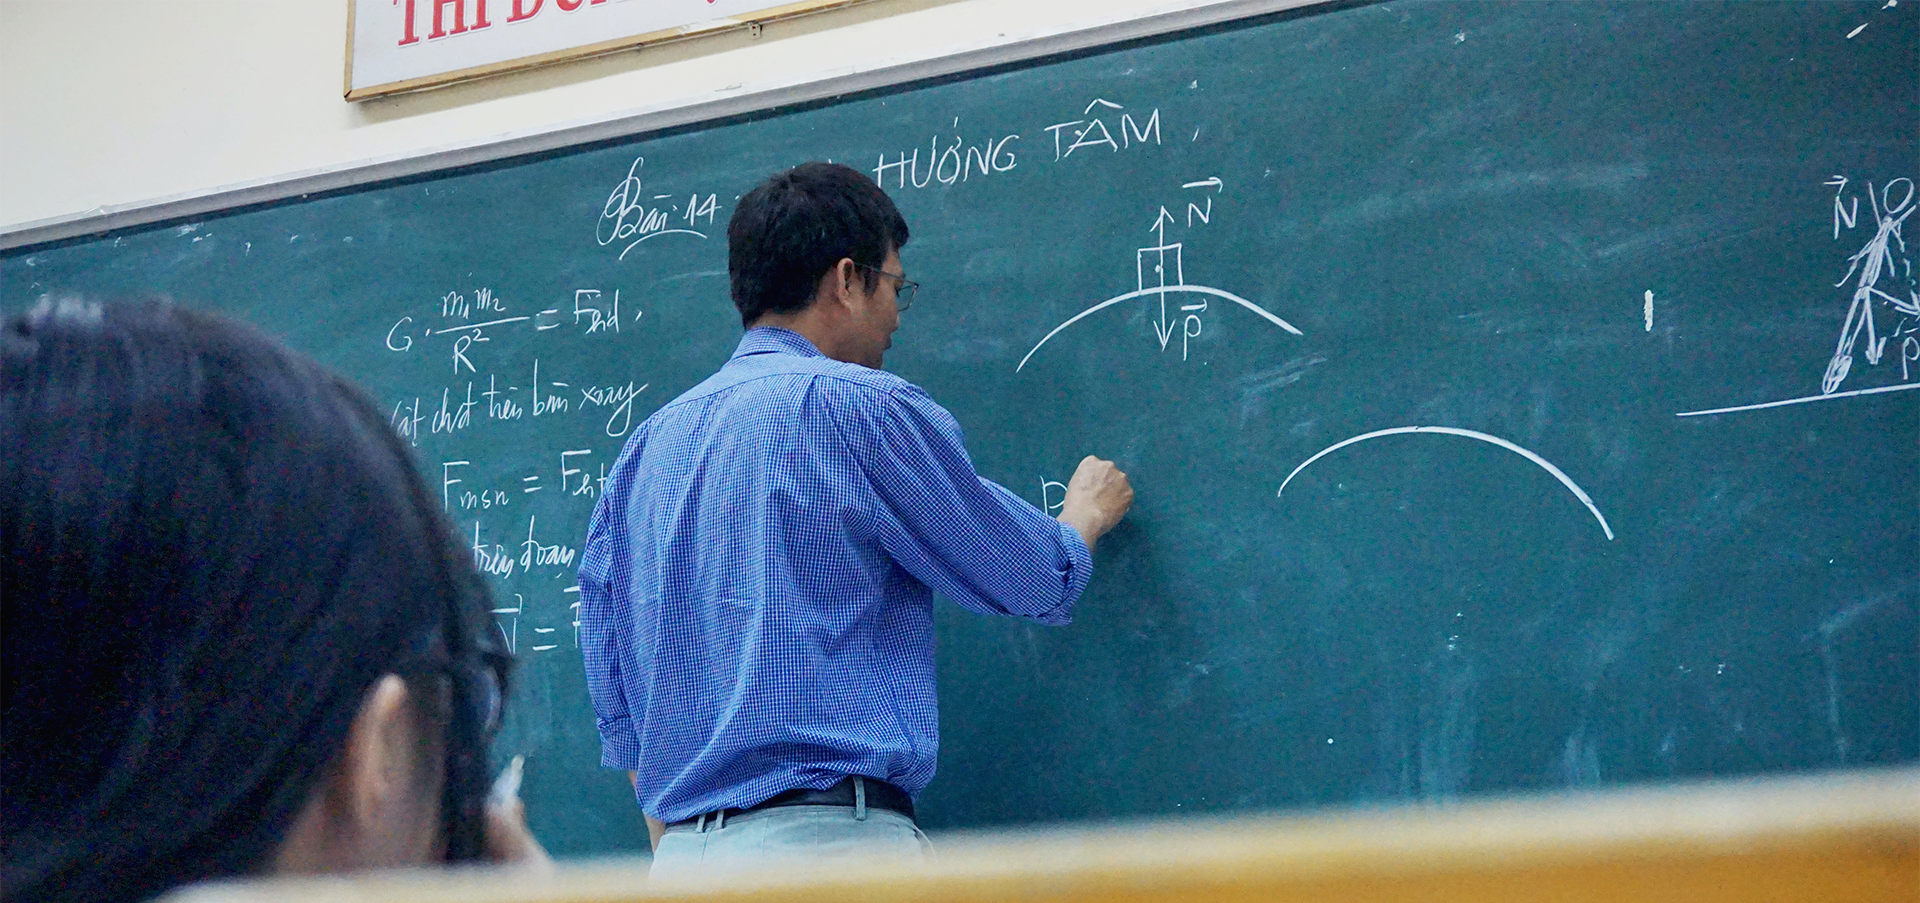 THI
Bài 14 HƯỚNG TÂM
G . m₁m₂ / R² = Fhd .
vật chđ trên bàn xoay
Fmsn = Fht
trên đoạn
N⃗ =
N⃗
P⃗
P
N⃗
P⃗